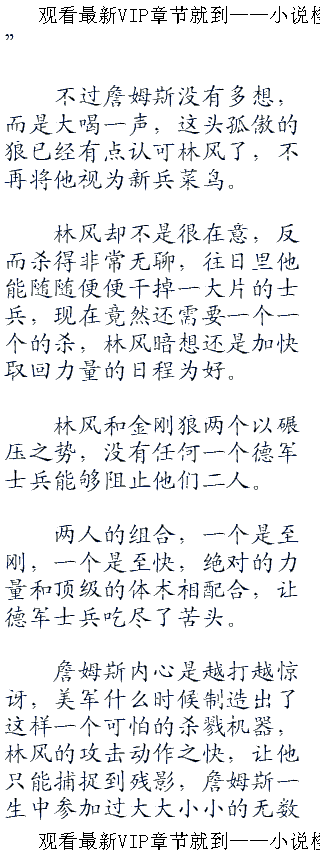 观看最新VIP章节就到——小说
”
不过詹姆斯没有多想，
而是大喝一声，这头孤傲的
狼已经有点认可林风了，不
再将他视为新兵菜鸟。
林风却不是很在意，反
而杀得非常无聊，往日里他
能随随便便干掉一大片的士
兵，现在竟然还需要一个一
个的杀，林风暗想还是加快
取回力量的日程为好。
林风和金刚狼两个以碾
压之势，没有任何一个德军
士兵能够阻止他们二人。
两人的组合，一个是至
刚，一个是至快，绝对的力
量和顶级的体术相配合，让
德军士兵吃尽了苦头。
詹姆斯内心是越打越惊
讶，美军什么时候制造出了
这样一个可怕的杀戮机器，
林风的攻击动作之快，让他
只能捕捉到残影，詹姆斯一
生中参加过大大小小的无数
观看最新VIP章节就到——小说